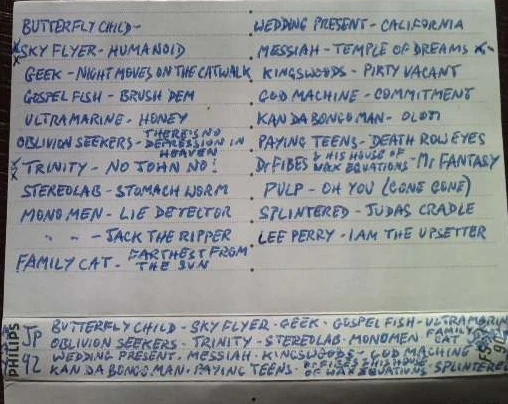 BUTTERFLY CHILD -
SKY FLYER - HUMANOID
GEEK - NIGHT MOVES ON THE CATWALK
GOSPEL FISH - BRUSH DEM
ULTRAMARINE - HONEY
OBLIVION SEEKERS - THERE'S NO DEPRESSION IN HEAVEN
TRINITY - NO JOHN NO!
STEREOLAB - STOMACH WORM
MONO MEN - LIE DETECTOR
" " - JACK THE RIPPER
FAMILY CAT - FARTHEST FROM THE SUN
WEDDING PRESENT - CALIFORNIA
MESSIAH - TEMPLE OF DREAMS
KINGSWOODS - PIRTY VACANT
GOD MACHINE - COMMITMENT
KANDA BONGO MAN - OLOTI
PAYING TEENS - DEATH ROW EYES
DR FIBES & HIS HOUSE OF WAX EQUATIONS - MR FANTASY
PULP - OH YOU (GONE GONE)
SPLINTERED - JUDAS CRADLE
LEE PERRY - I AM THE UPSETTER
PHILIPS
JP
92
BUTTERFLY CHILD - SKY FLYER - GEEK - GOSPEL FISH - ULTRAMARINE
OBLIVION SEEKERS - TRINITY - STEREOLAB - MONOMEN - FAMILY CAT
WEDDING PRESENT - MESSIAH - KINGSWOODS - GOD MACHINE
KANDA BONGO MAN - PAYING TEENS - DR FIBES & HIS HOUSE OF WAX EQUATIONS SPLINTERED
90